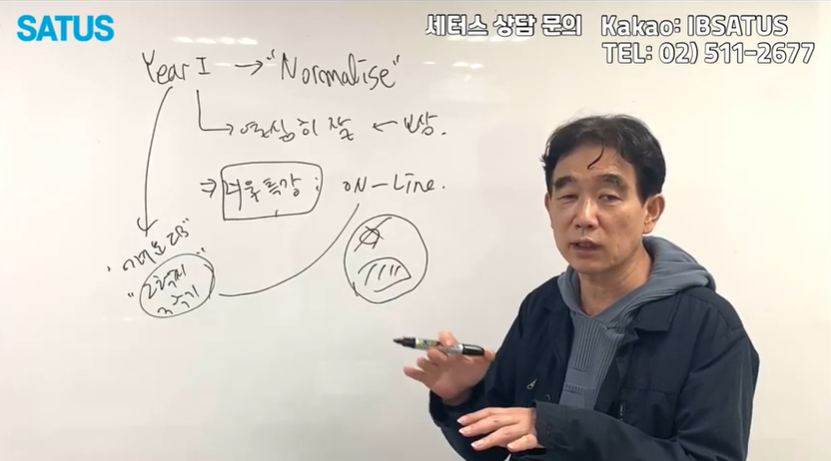 SATUS
세터스 상담 문의 Kakao: IBSATUS
TEL: 02) 511-2677
Year I → "Normalise"
열심히 잘 ← 보상.
⇒ 겨울특강 : ON-Line.